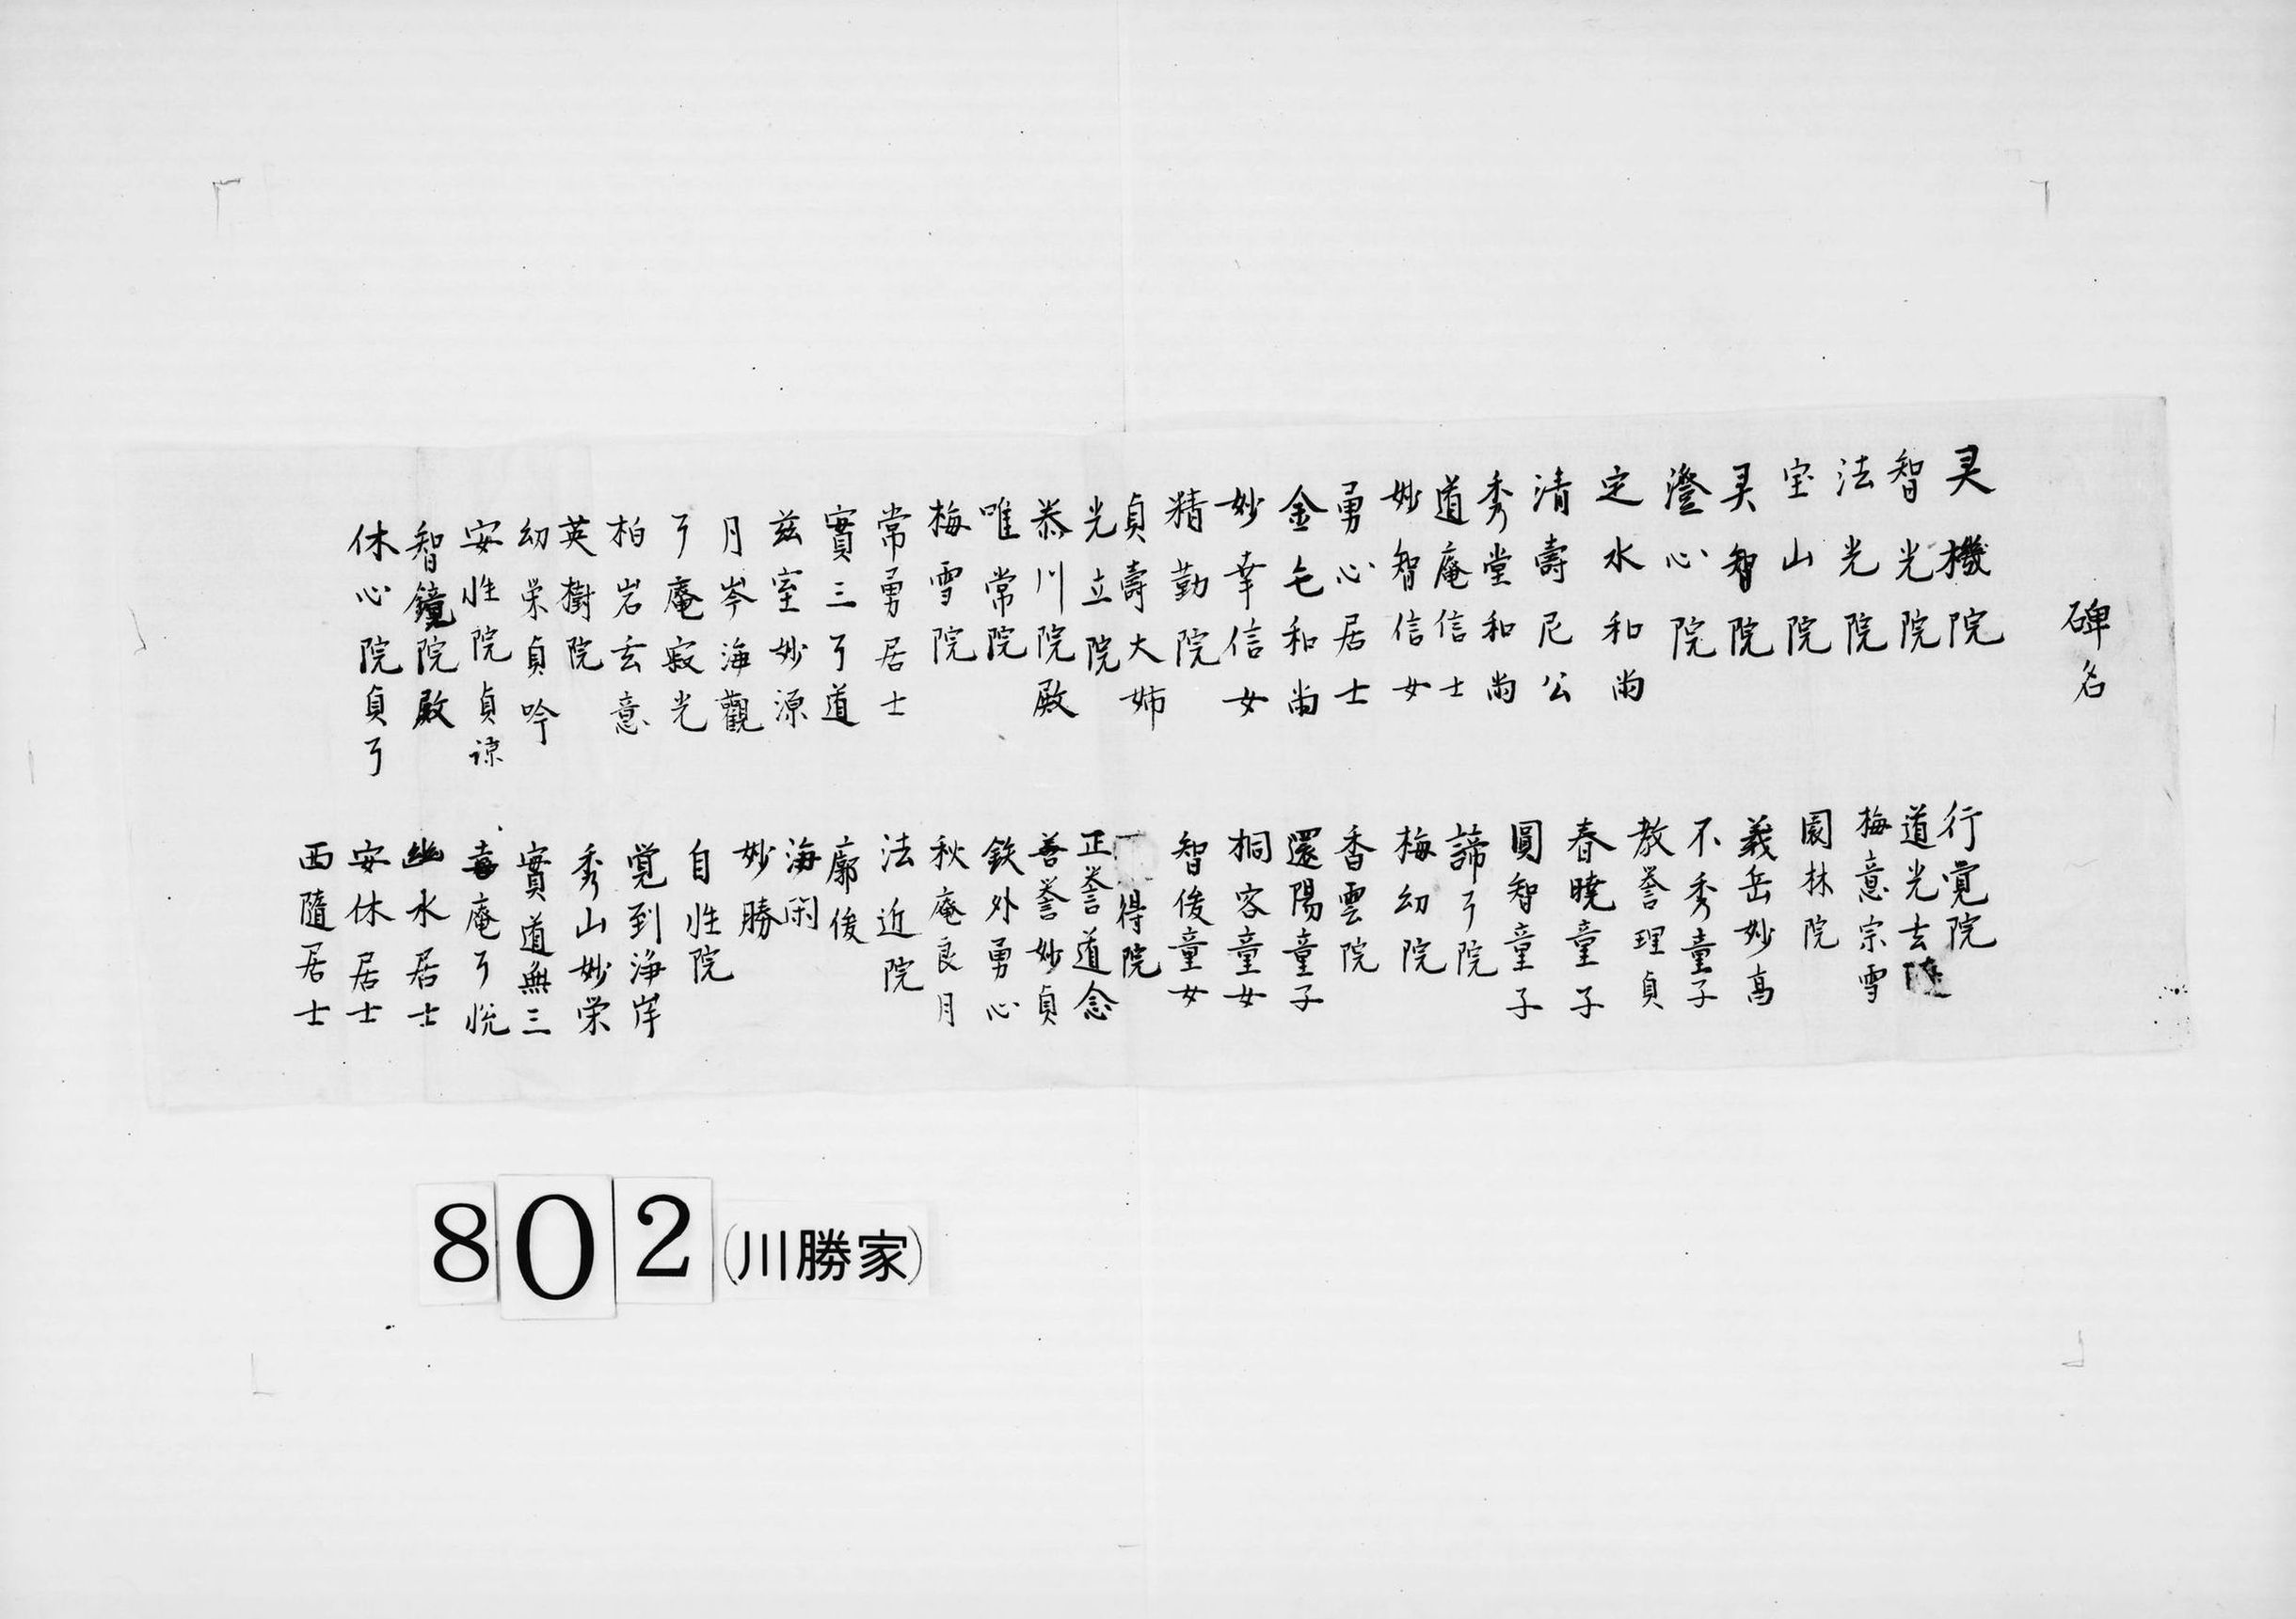 碑名
灵機院
智光院
法光院
宝山院
灵智院
澄心院
定水和尚
清壽尼公
秀堂和尚
道庵信士
妙智信女
勇心居士
金乇和尚
妙幸信女
精勤院
貞壽大姉
光立院
恭川院殿
唯常院
梅雪院
常勇居士
實三了道
茲室妙源
月岑海觀
了庵寂光
柏岩玄意
英樹院
幻栄貞吟
安性院貞諒
智鏡院殿
休心院貞了
行覚院
道光去
梅意宗雪
園林院
義岳妙高
不秀童子
教誉理貞
春曉童子
圓智童子
諦了院
梅幻院
香雲院
還陽童子
桐容童女
智俊童女
得院
正誉道念
善誉妙貞
鉄外勇心
秋庵良月
法近院
廓俊
海閑
妙勝
自性院
覚到浄岸
秀山妙栄
實道無三
毒庵了悦
幽水居士
安休居士
西隨居士
802(川勝家)